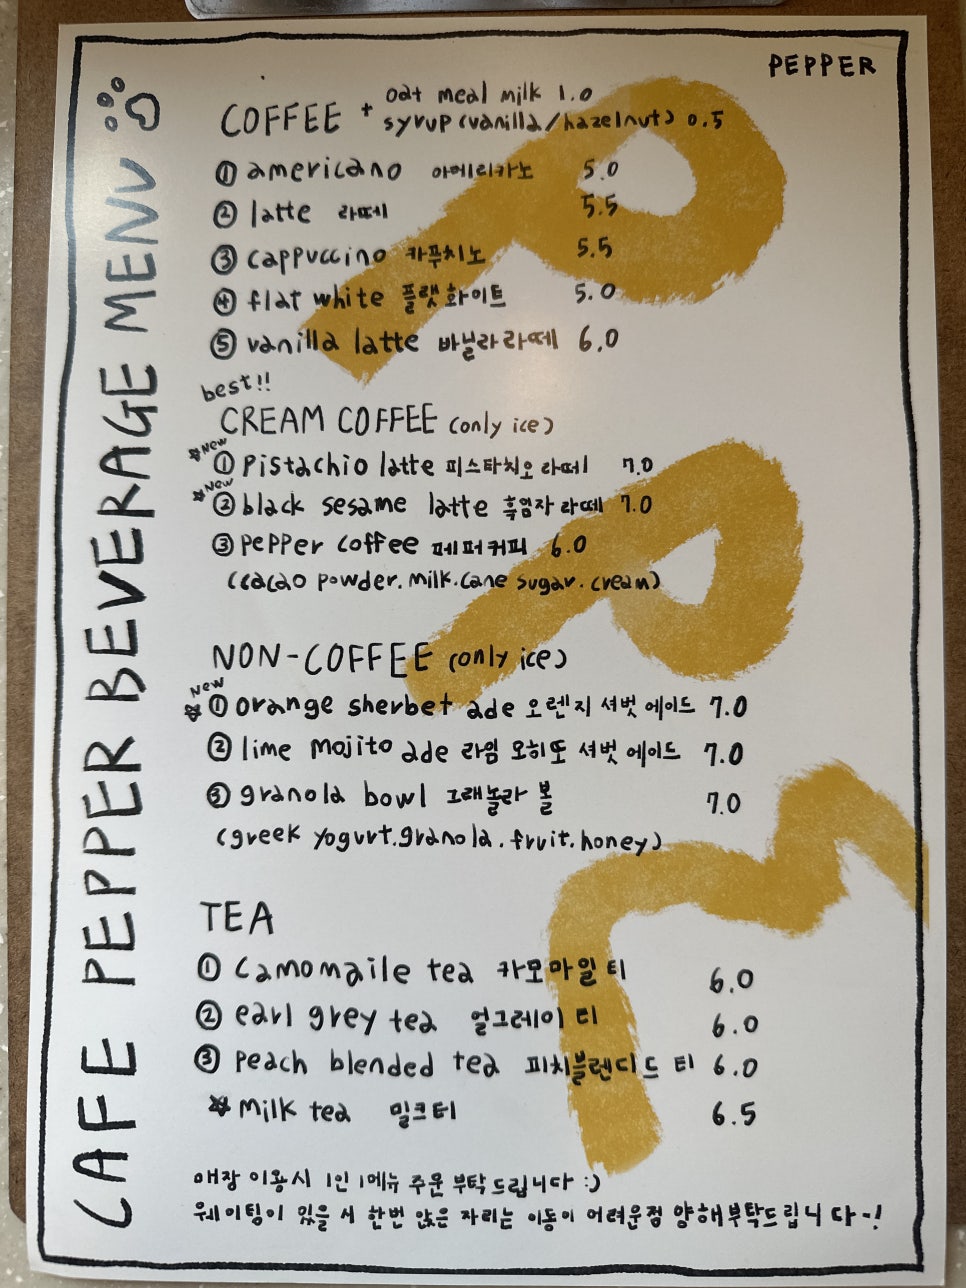 PEPPER
CAFE PEPPER BEVERAGE MENU
COFFEE + oat meal milk 1.0
syrup (vanilla/hazelnut) 0.5
① americano 아메리카노 5.0
② latte 라떼 5.5
③ cappuccino 카푸치노 5.5
④ flat white 플랫화이트 5.0
⑤ vanilla latte 바닐라라떼 6.0
best!!
CREAM COFFEE (only ice)
New ① pistachio latte 피스타치오 라떼 7.0
New ② black sesame latte 흑임자 라떼 7.0
③ pepper coffee 페퍼커피 6.0
(cacao powder. milk. cane sugar. cream)
NON-COFFEE (only ice)
New ① orange sherbet ade 오렌지 셔벗 에이드 7.0
② lime mojito ade 라임 모히또 셔벗 에이드 7.0
③ granola bowl 그래놀라 볼 7.0
(greek yogurt. granola. fruit. honey)
TEA
① camomaile tea 카모마일 티 6.0
② earl grey tea 얼그레이 티 6.0
③ peach blended tea 피치블렌디드 티 6.0
☆ milk tea 밀크티 6.5
매장 이용시 1인 1메뉴 주문 부탁드립니다 :)
웨이팅이 있을 시 한번 앉은 자리는 이동이 어려운점 양해부탁드립니다~!